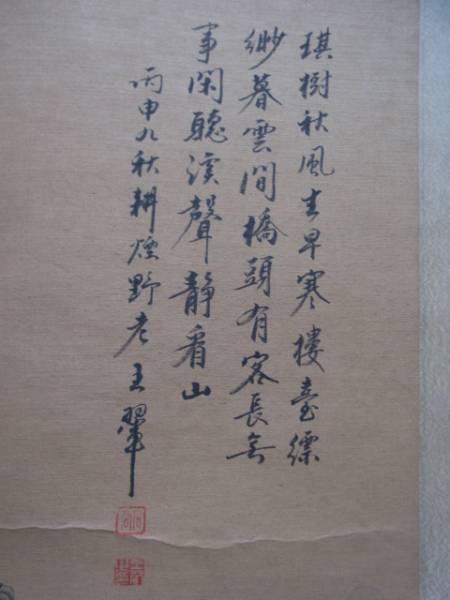 琪樹秋風生早寒樓臺縹
緲暮雲間橋頭有客長無
事閑聽溪聲静看山
丙申九秋耕煙野老王翬